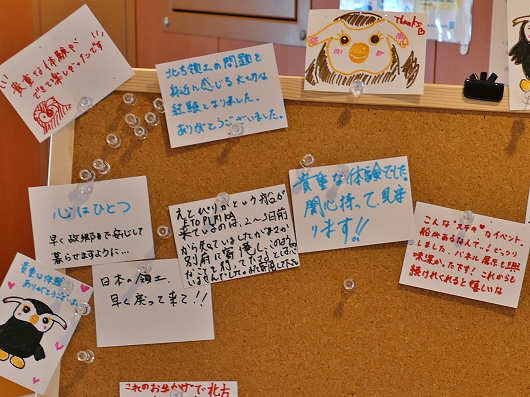 貴重な体験が
できて楽しかったです
北方領土の問題を
身近に感じる大切な
経験となりました。
ありがとうございました。
Thank
心はひとつ
早く故郷で安心して
暮らせますように…
えとぴりかという船が
ETOPIRIKA
来ているのは、2〜3日前
から知っていましたがまさか
別府に寄港し、このよう
貴重な体験でした。
関心持って見守
ります!!
こんなステキなイベント、
船があるなんて…!びっくり
しました。パネル展示も興
味深かったです!これからも
続けてくれると嬉しいな
貴重な体験
ありがとうございました
日本の領土、
早く戻って来て!!